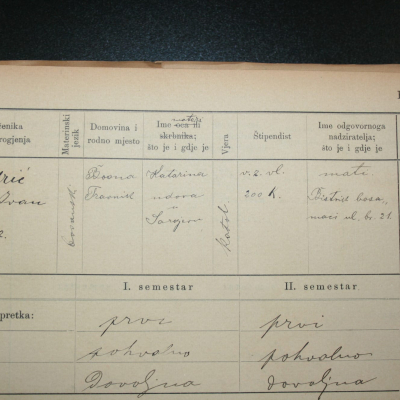 I
enika
rogjenja
Materinski
jezik
Domovina i
rodno mjesto
matere
Ime oca ili
skrbnika;
što je i gdje je
Vjera
Štipendist
Ime odgovornoga
nadziratelja;
što je i gdje je
drić
Ivan
bosanski
Bosna
Travnik
Katarina
udova
u
Sarajevu
katol.
200 k.
mati
I. semestar
II. semestar
pretka:
prvi
prvi
pohvalno
pohvalno
Dovoljna
dovoljna